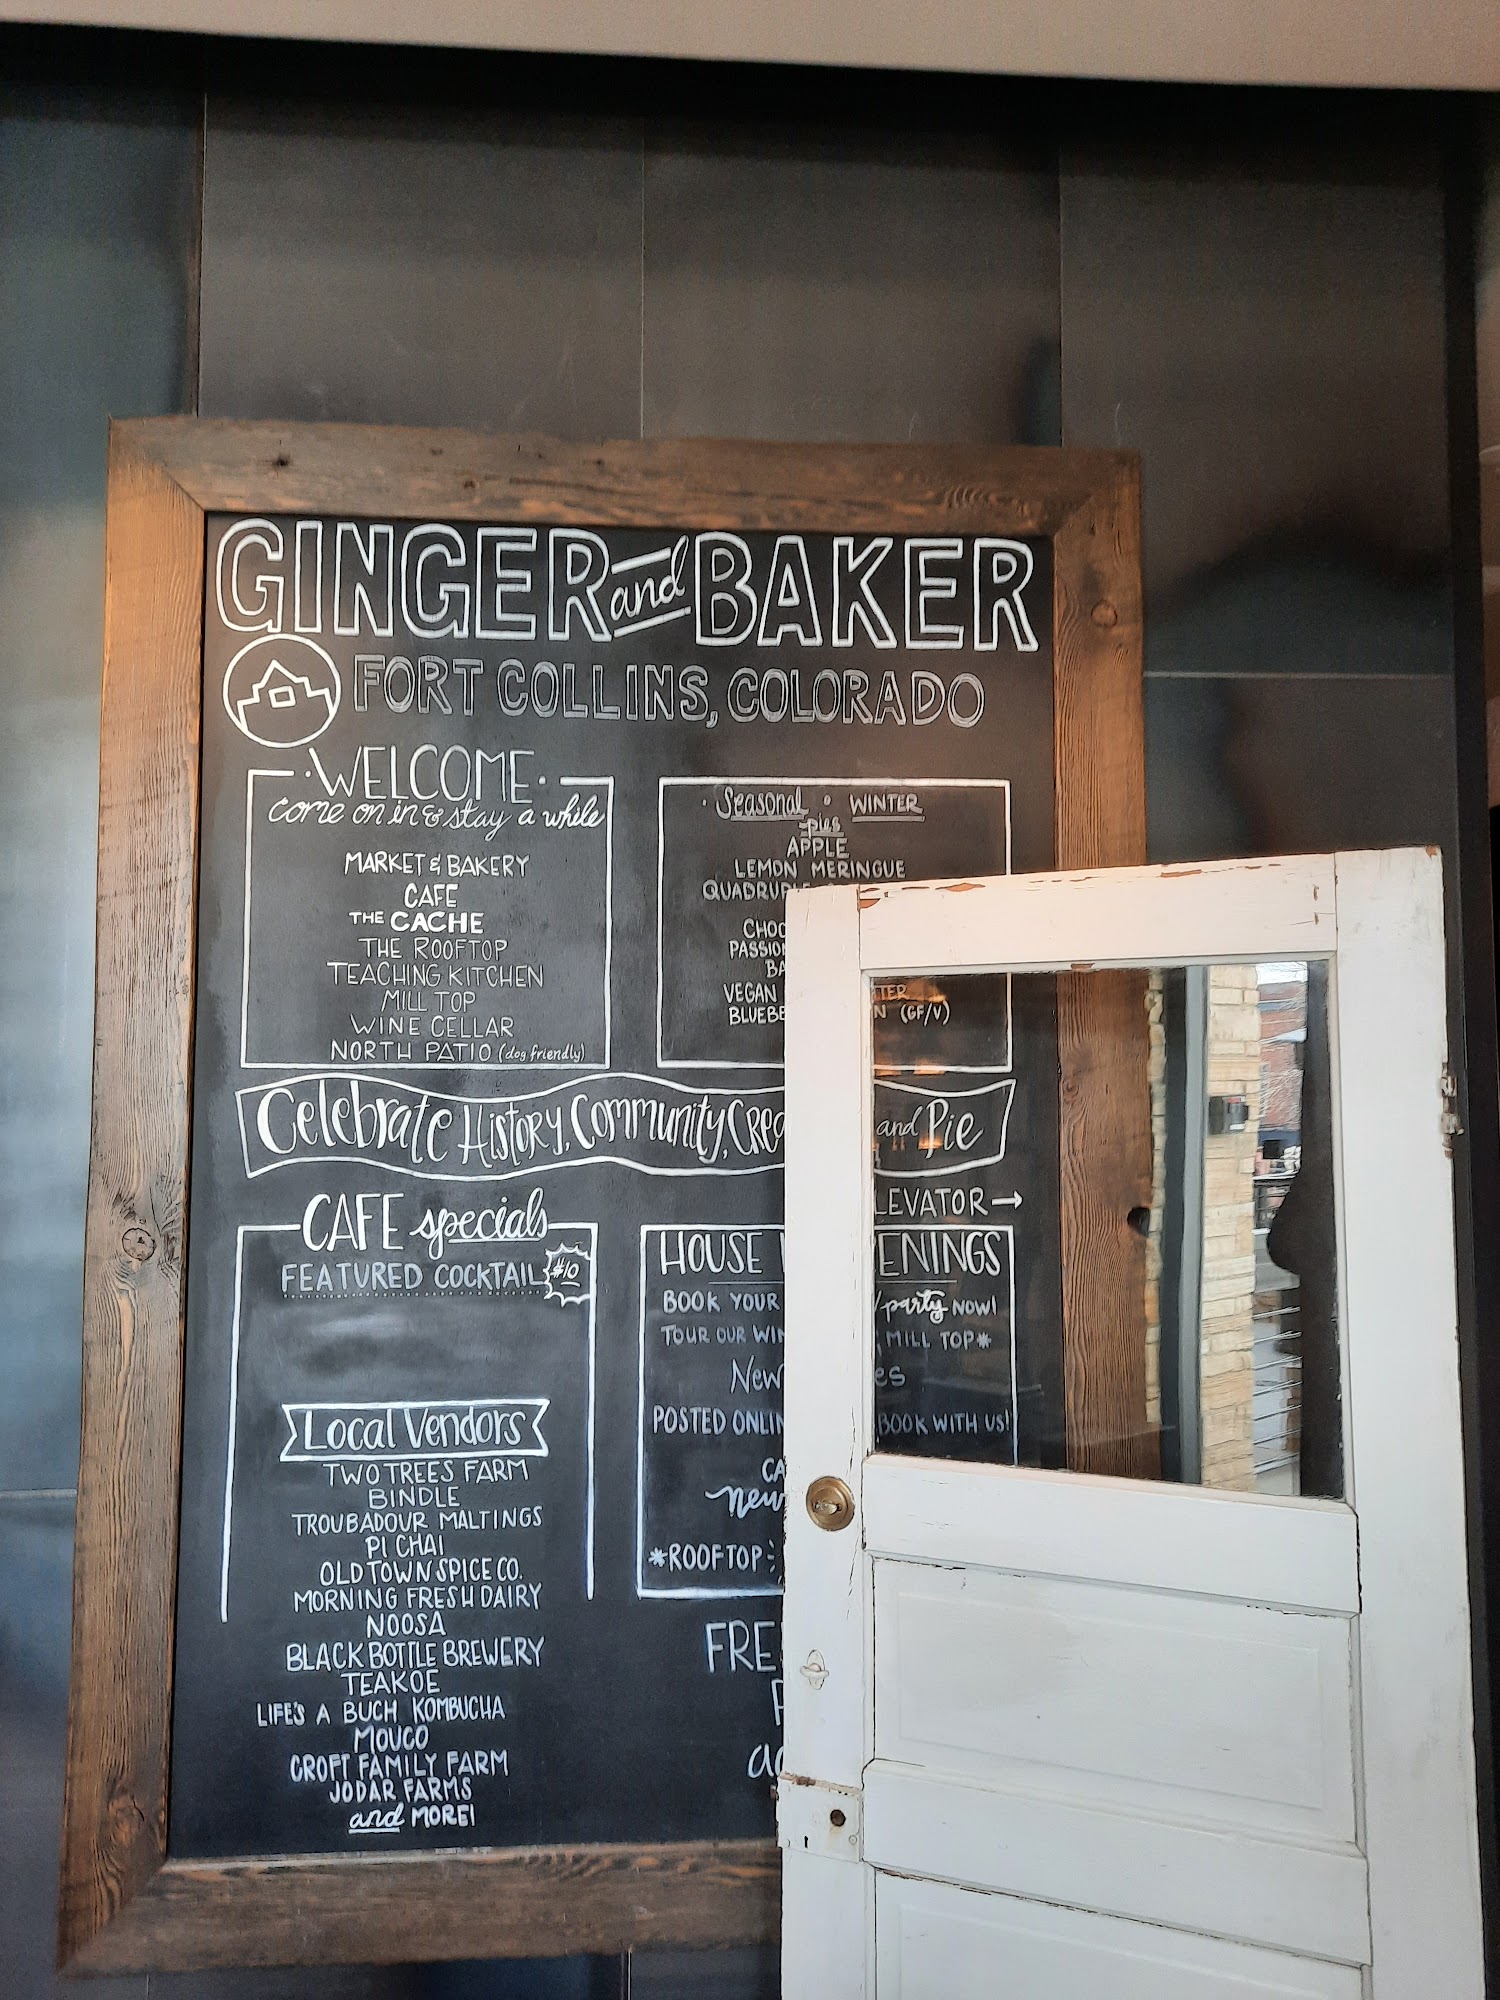 GINGER and BAKER
FORT COLLINS, COLORADO
·WELCOME·
come on in & stay a while
MARKET & BAKERY
CAFE
THE CACHE
THE ROOFTOP
TEACHING KITCHEN
MILL TOP
WINE CELLAR
NORTH PATIO (dog friendly)
· Seasonal · WINTER
pies
APPLE
LEMON MERINGUE
VEGAN
(GF/V)
Celebrate History, Community, and Pie
CAFE specials
FEATURED COCKTAIL $10
Local Vendors
TWO TREES FARM
BINDLE
TROUBADOUR MALTINGS
PI CHAI
OLD TOWN SPICE CO.
MORNING FRESH DAIRY
NOOSA
BLACK BOTTLE BREWERY
TEAKOE
LIFE'S A BUCH KOMBUCHA
MOUCO
CROFT FAMILY FARM
JODAR FARMS
and MORE!
LEVATOR→
HOUSE ENINGS
BOOK YOUR party NOW!
TOUR OUR MILL TOP*
New
POSTED BOOK WITH US!
new
*ROOFTOP